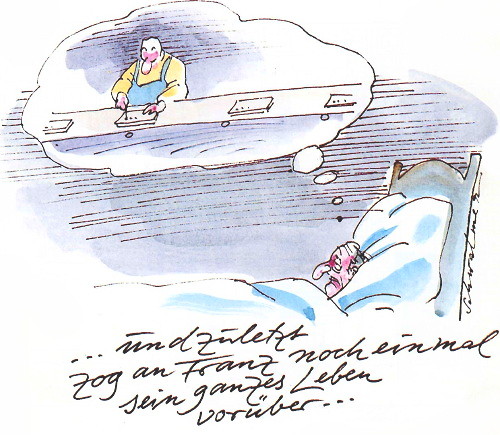 ... und zuletzt
zog an Franz noch einmal
sein ganzes Leben
vorüber...